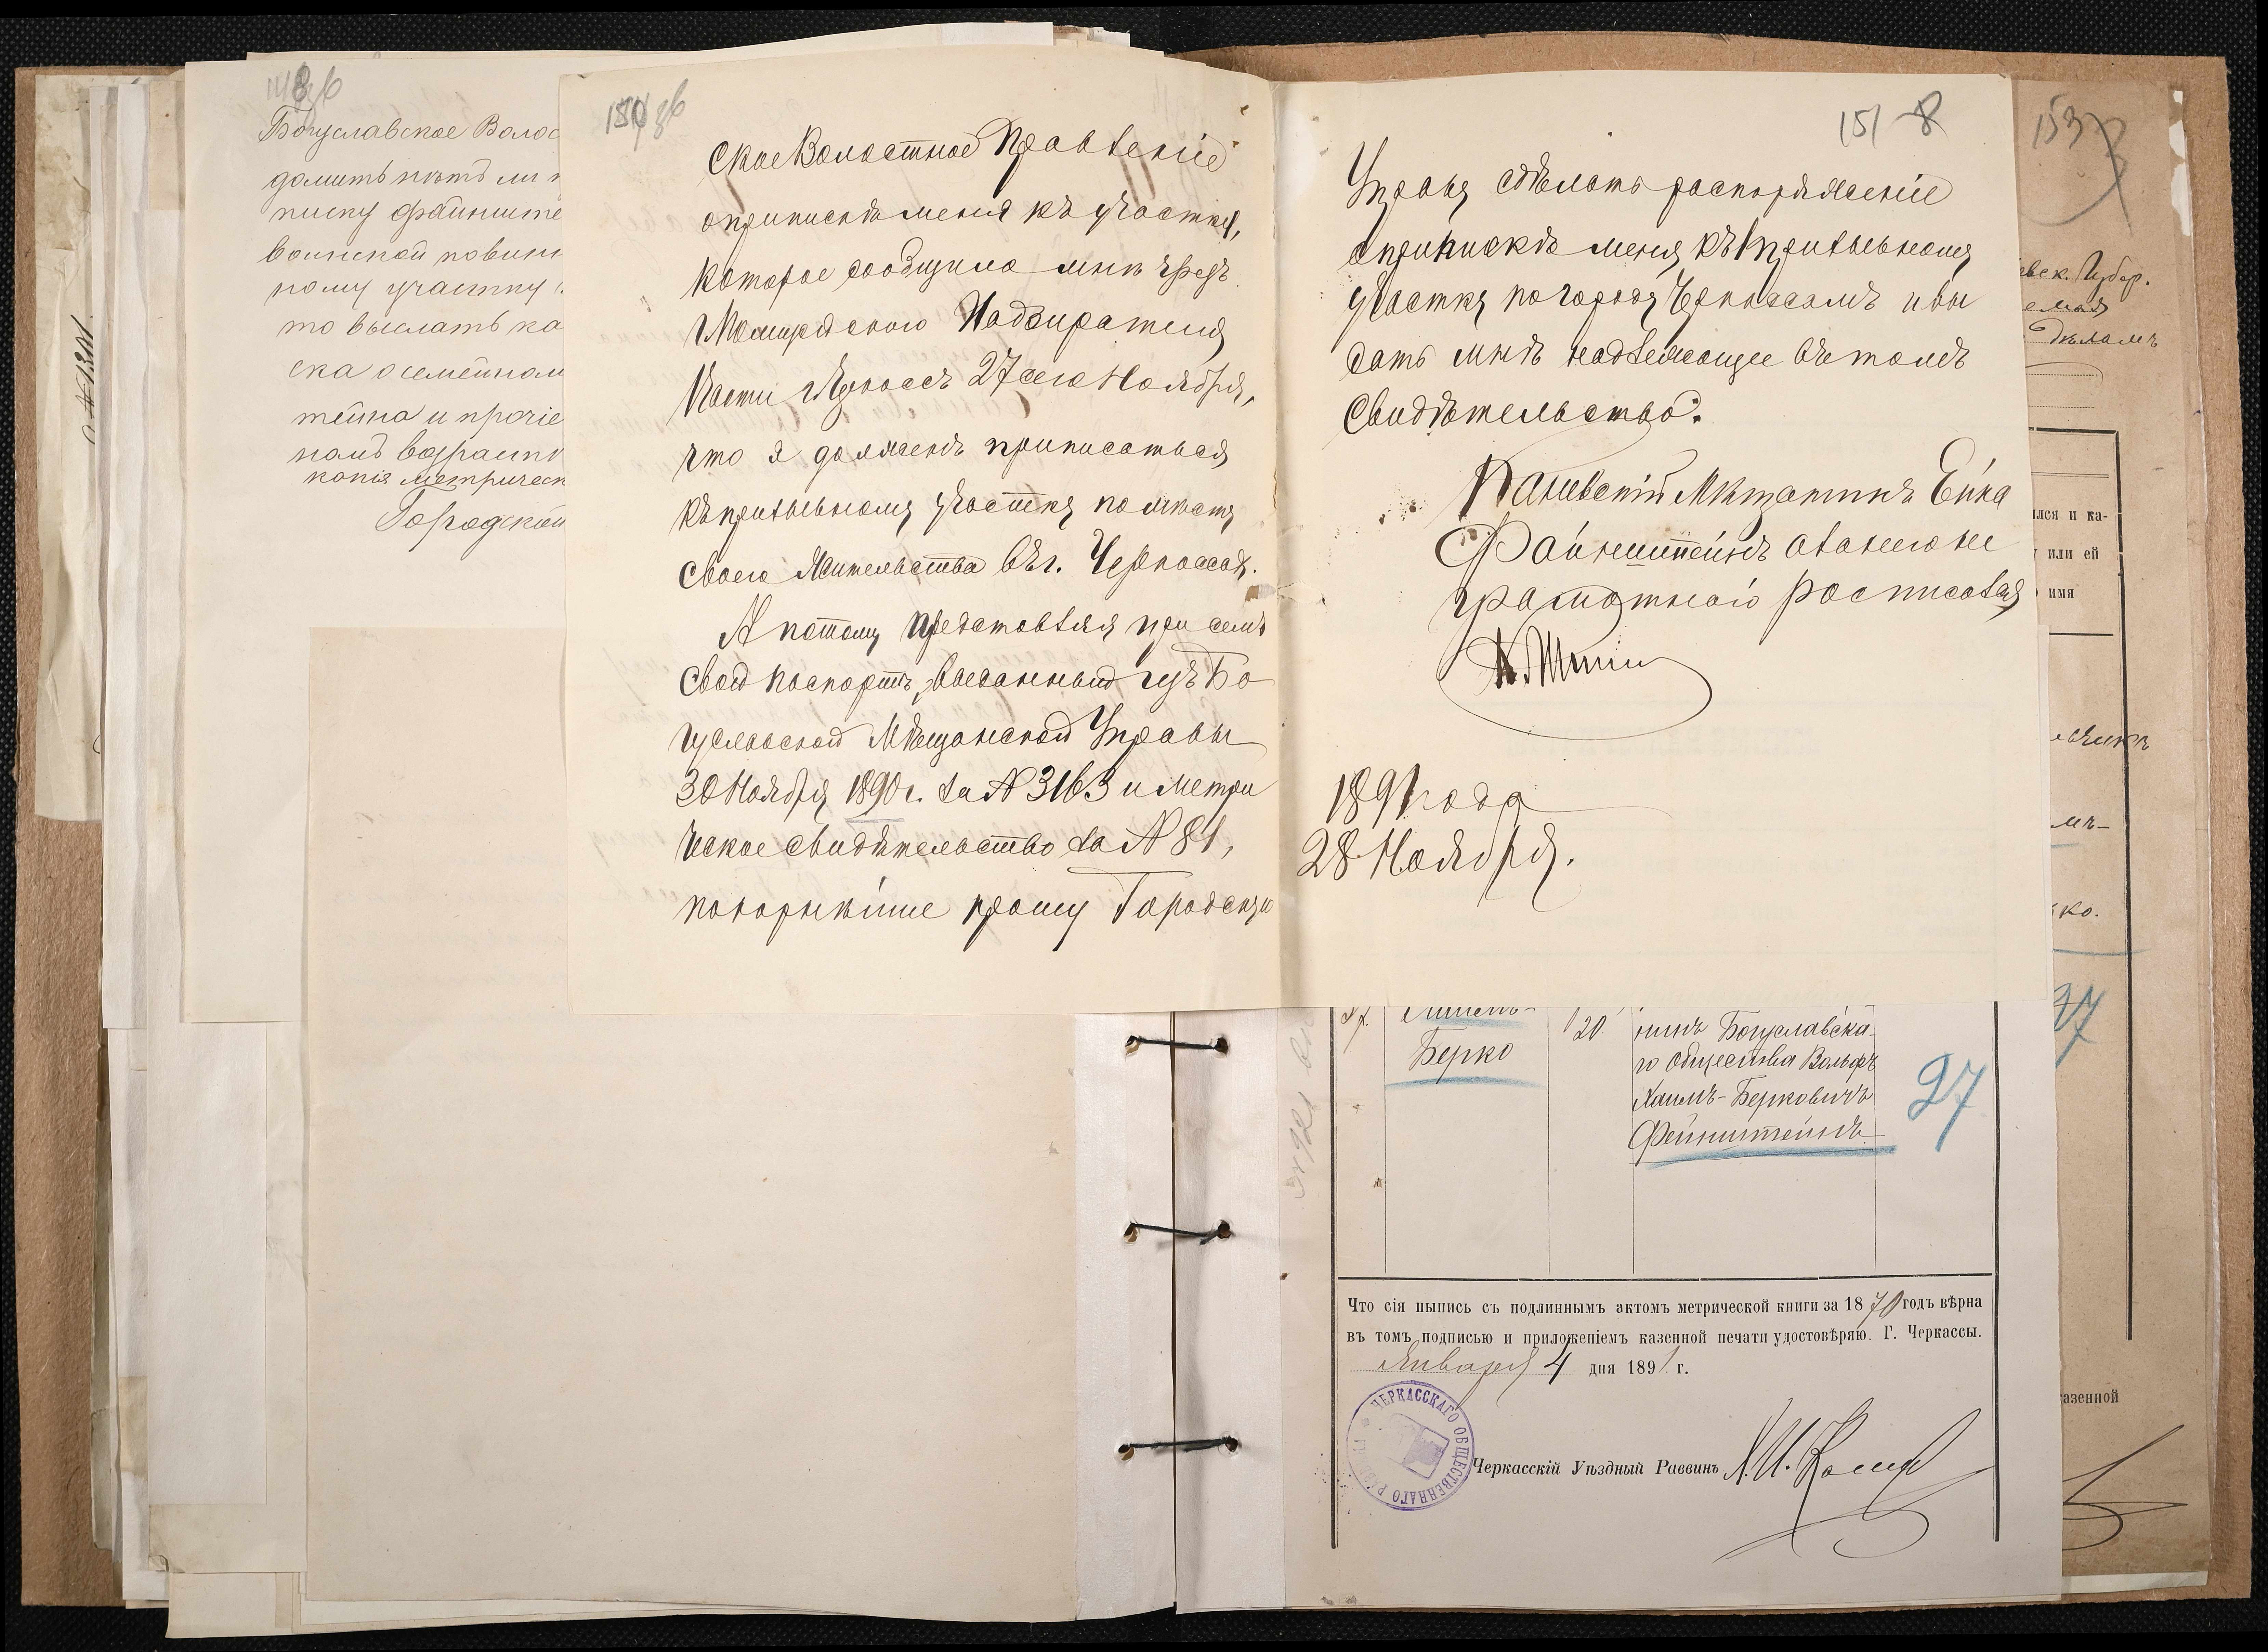 Богуславское Волос
домить нѣтъ ли
писку Файнште
воинской повин
ному участку
то выслать ко
ска о семейном
тейна и прочіе
номъ возрасти
копія метрическ
Городской
150
ское Волостное Правленіе
о припискѣ меня къ участку,
которое сообщило мнѣ чрезъ
Полицейскаго Надзирателя
Части г. Черкассъ 27 сего Ноября,
что я долженъ приписаться
къ призывному участку по мѣсту
своего Жительства въ г. Черкассах.
А потому представляя при семъ
свой паспортъ, выданный изъ Бо
гуславской Мѣщанской Управы
30 Ноября 1890 г. за № 3163 и метри
ческое свидѣтельство за № 81,
покорнѣйше прошу Городскую
151 8
Управу сдѣлать распоряженіе
о припискѣ меня къ призывному
участку по городу Черкассамъ и вы
дать мнѣ надлежащее въ томъ
свидѣтельство.
Каневскій Мѣщанинъ Ейна
Файнштейнъ а за него не
грамотнаго росписался
1891 года
28 Ноября.
153
вск. Губер.
дѣламъ
лся и ка-
или ей
имя
ко.
27
азенной
Берко
20
нинъ Богуславска-
го общества Вольфъ
Хаимъ-Берковичъ
Фейнштейнъ
27
Что сія выпись съ подлиннымъ актомъ метрической книги за 1870 годъ вѣрна
въ томъ подписью и приложеніемъ казенной печати удостовѣряю. Г. Черкассы.
Января 4 дня 1891 г.
ЧЕРКАССКАГО ОБЩЕСТВЕННАГО РАВВИНА
Черкасскій Уѣздный Раввинъ